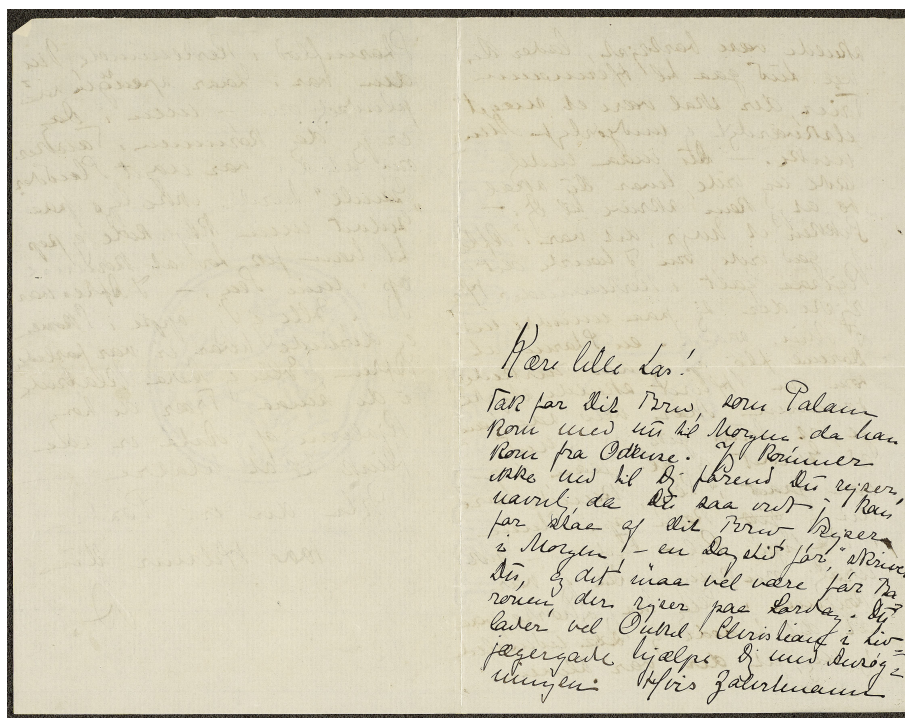 Kære lille Las!
Tak for Dit Brev, som Palam
kom med nu til Morgen da han
kom fra Odense. Jeg kommer
ikke ned til Dig førend Du rejser,
navnlig da Du saa vidt jeg kan
forstaa af Dit Brev rejser
i Morgen, - en Dagstid før," skriver
Du, og det maa vel være før Ba
ronen, der rejser paa Lørdag. Du
lader vel Onkel Christian i Liv=
jægergade hjælpe Dig med Ansøg=
ningen. Hvis Zahrtmann